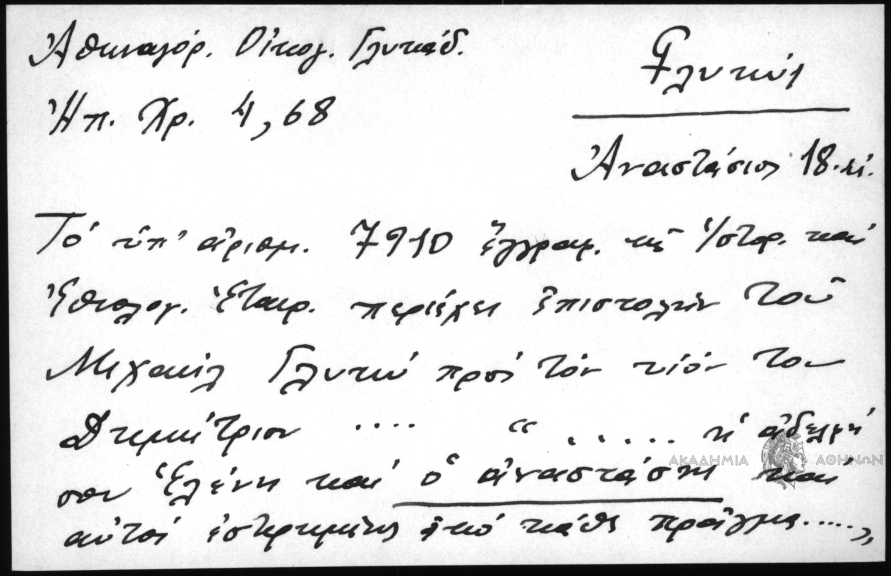 Ἀθηναγόρ. Οἰκογ. Γλυκάδ.
Ἠπ. Χρ. 4, 68
Γλυκύς
Ἀναστάσιος 18. αἰ.
Τό ὑπ' ἀριθμ. 7910 ἔγγραφ. τῆς Ἱστορ. καί
Ἐθνολογ. Ἑταιρ. περιέχει ἐπιστολήν τοῦ
Μιχαήλ Γλυκύ πρός τόν υἱόν του
Δημήτριον .... “ ...... ἡ ἀδελφή
σου Ἑλένη καί ὁ ἀναστάσης καί
αὐτοί ἐστερημένοι ἀπό κάθε πρᾶγμα.....„
ΑΚΑΔΗΜΙΑ ΑΘΗΝΩΝ